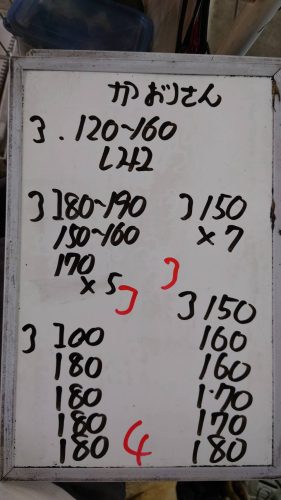 かおりさん
3.120~160
L42
3 180~190
150~160
170
×5
3
3 150
×7
3
3 100
180
180
180
180
4
3 150
160
160
170
170
180